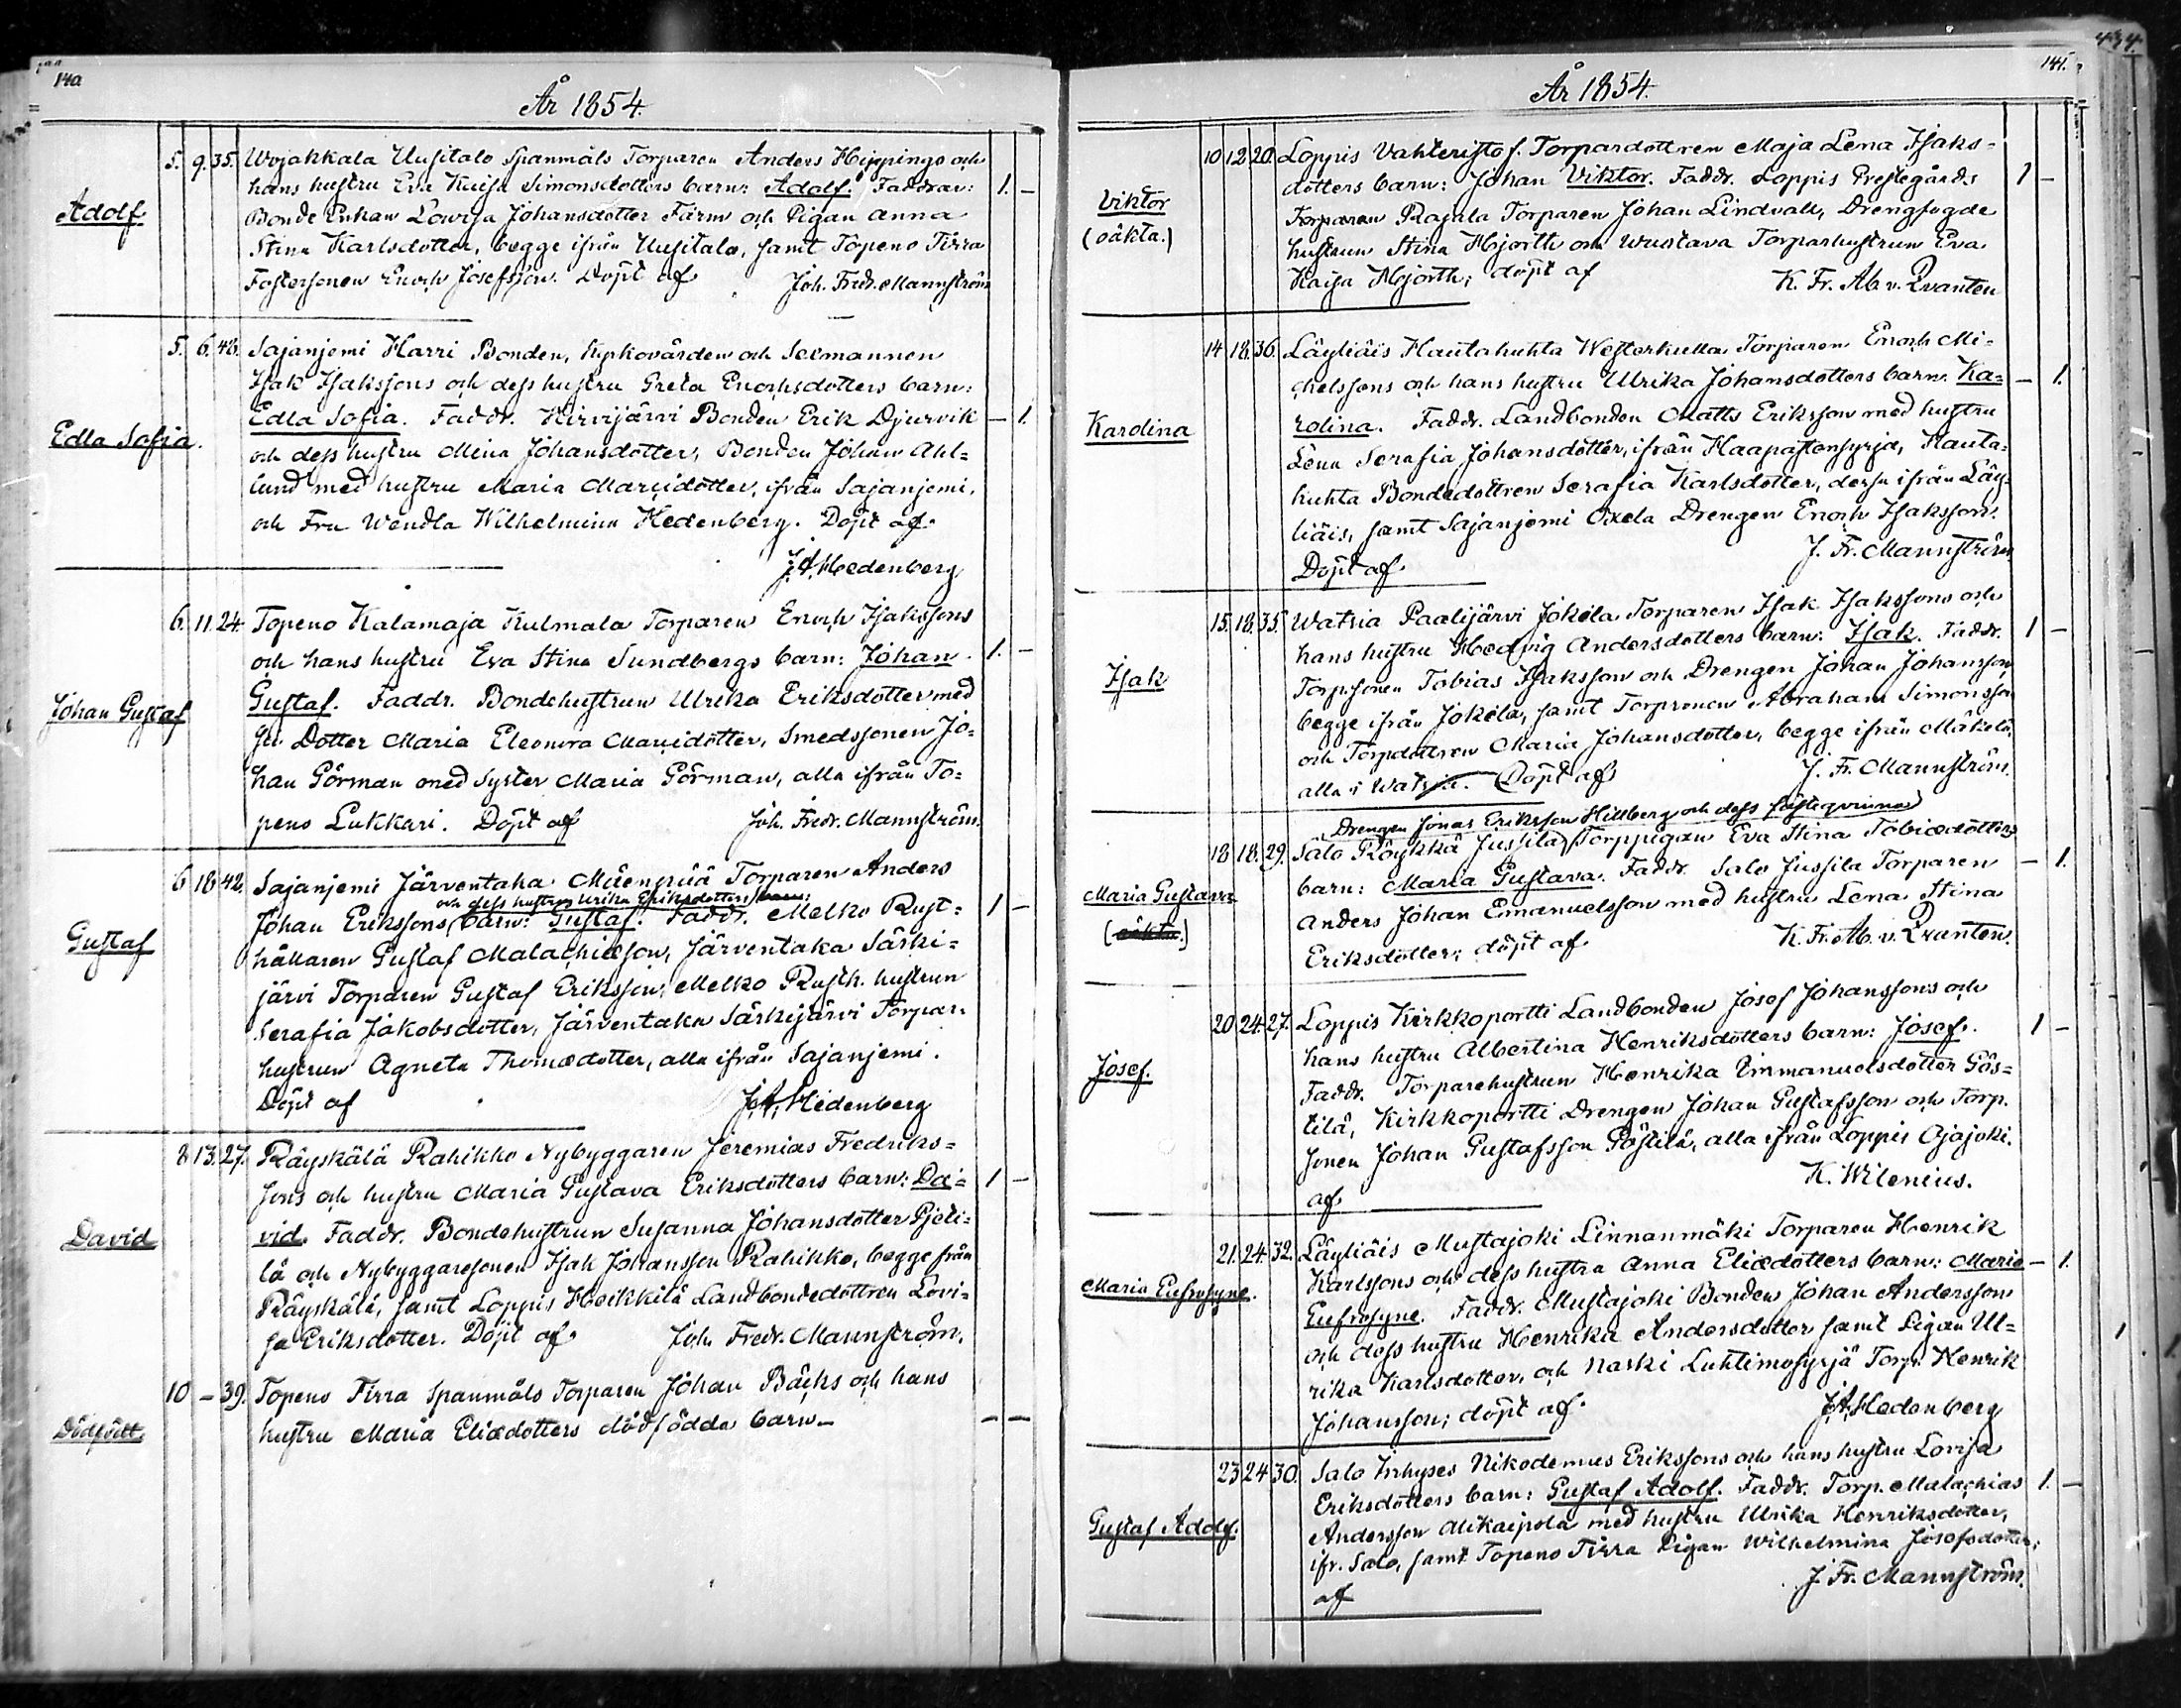 140.
År 1854.
Adolf
5. 9. 35. Wojakkala Uusitalo Spanmåls Torparen Anders Hippings och
hans hustru Eva Kaisa Simonsdotters barn: Adolf. Faddrar: 1. –
Bonde Enkan Lovisa Johansdotter Färm och Pigan Anna
Stina Karlsdotter, begge ifrån Uusitalo, samt Topeno Tirra
Fostersonen Enoch Josefsson. Döpt af Joh. Fredr. Mannström
Edla Sofia.
5. 6. 48. Sajaniemi Harri Bonden, Kyrkovärden och Sexmannen
Isak Isakssons och dess hustru Greta Enochsdotters barn:
Edla Sofia. Faddr. Hirvijärvi Bonden Erik Djurvik – 1.
och dess hustru Mina Johansdotter, Bonden Johan Ahl=
lund med hustru Maria Mariidotter, ifrån Sajaniemi,
och Fru Wendla Wilhelmina Hedenberg. Döpt af
J.A. Hedenberg
Johan Gustaf
6. 11. 24. Topeno Kalamaja Kulmala Torparen Enoch Isakssons
och hans hustru Eva Stina Sundbergs barn: Johan 1. –
Gustaf. Faddr. Bondehustrun Ulrika Eriksdotter med
Dotter Maria Eleonora Mariidotter, Smedssonen Jo=
han Görman med Syster Maria Görman, alla ifrån To=
peno Lukkari. Döpt af Joh. Fredr. Mannström.
Gustaf
6 18 42. Sajaniemi Järventaka Mäenpää Torparen Anders
och dess hustrus Ulrika Eriksdotters barn:
Johan Erikssons barn: Gustaf. Faddr. Melko Rust= 1 –
hållaren Gustaf Malachiæson, Järventaka Särki=
järvi Torparen Gustaf Eriksson, Melko Rusth. hustrun
Serafia Jakobsdotter, Järventaka Särkijärvi Torpar.
hustrun Agneta Thomædotter, alla ifrån Sajaniemi.
Döpt af J.A. Hedenberg
David
8. 13. 27. Räyskälä Rahikko Nybyggaren Jeremias Fredriks=
sons och hustru Maria Gustava Eriksdotters barn: Da= 1 –
vid. Faddr. Bondehustrun Susanna Johansdotter Pjeti=
lä och Nybyggaresonen Isak Johansson Rahikko, begge från
Räyskälä, samt Loppis Heikkilä Landbondedottren Lovi=
sa Eriksdotter. Döpt af Joh. Fredr. Mannström.
Dödfödt.
10 – 39. Topeno Tirra Spanmåls Torparen Johan Bäcks och hans
hustru Maria Eliædotters dödfödda barn – – –
434.
141.
År 1854.
Viktor
(oäkta.)
10 12 20. Loppis Vahteristo f. Torpardottren Maja Lena Isaks=
dotters barn: Johan Viktor. Faddr. Loppis Prestegårds 1 –
Torparen Rajala Torparen Johan Lindvall, Drengfogde
hustrun Stina Hjorth och Wuotava Torparhustrun Eva
Kaisa Hjorth; döpt af K. Fr. Ab v. Qvanten
Karolina
14 18. 36. Läyliäis Hautahuhta Westerkulla Torparen Enoch Mi=
chelssons och hans hustru Ulrika Johansdotters barn. Ka= – 1.
rolina. Faddr. Landbonden Matts Eriksson med hustru
Lena Serafia Johansdotter, ifrån Haapastensyrjä, Hauta=
huhta Bondedottren Serafia Karlsdotter, desse ifrån Läy=
liäis, samt Sajaniemi Oxela Drengen Enoch Isaksson.
Döpt af J. Fr. Mannström
Isak
15. 18. 35. Watsia Paalijärvi Jokela Torparen Isak Isakssons och
hans hustru Hedvig Andersdotters barn: Isak. Faddr. 1 –
Torpsonen Tobias Isaksson och Drengen Johan Johansson
begge ifrån Jokela, samt Torpsonen Abraham Simonsson
och Torpdottren Maria Johansdotter, begge ifrån Mäkelä,
alla i Watsia. Döpt af J. Fr. Mannström.
Maria Gustava
(oäkta.)
Drengen Jonas Eriksson Hillberg och dess fästeqvinnas
18 18. 29. Salo Röykkä Jussila Torppigan Eva Stina Tobiædotters
barn: Maria Gustava. Faddr. Salo Jussila Torparen – 1.
Anders Johan Emanuelsson med hustru Lena Stina
Eriksdotter; döpt af K. Fr. Ab. v. Qvanten.
Josef.
20 24. 27. Loppis Kirkkoportti Landbonden Josef Johanssons och
hans hustru Albertina Henriksdotters barn: Josef. 1 –
Faddr. Torparehustrun Henrika Emmanuelsdotter Gös=
tilä, Kirkkoportti Drengen Johan Gustafsson och Torp.
sonen Johan Gustafsson Göstilä, alla ifrån Loppis Ojajoki.
af K. Wilenius.
Maria Eufrosyne.
21. 24. 32. Läyliäis Mustajoki Linnanmäki Torparen Henrik
Karlssons och dess hustru Anna Eliædotters barn: Maria – 1.
Eufrosyne. Faddr. Mustajoki Bonden Johan Andersson
och dess hustru Henrika Andersdotter samt Pigan Ul=
rika Karlsdotter, och Naski Luhtimosyrjä Torpr. Henrik
Johansson; döpt af J.A. Hedenberg
Gustaf Adolf.
23 24 30. Salo Inhyses Nikodemus Erikssons och hans hustru Lovisa
Eriksdotters barn: Gustaf Adolf. Faddr. Torp. Malachias 1. –
Andersson Alikaipola med hustru Ulrika Henriksdotter,
ifr. Salo, samt Topeno Tirra Pigan Wilhelmina Josefsdotter,
af J. Fr. Mannström.